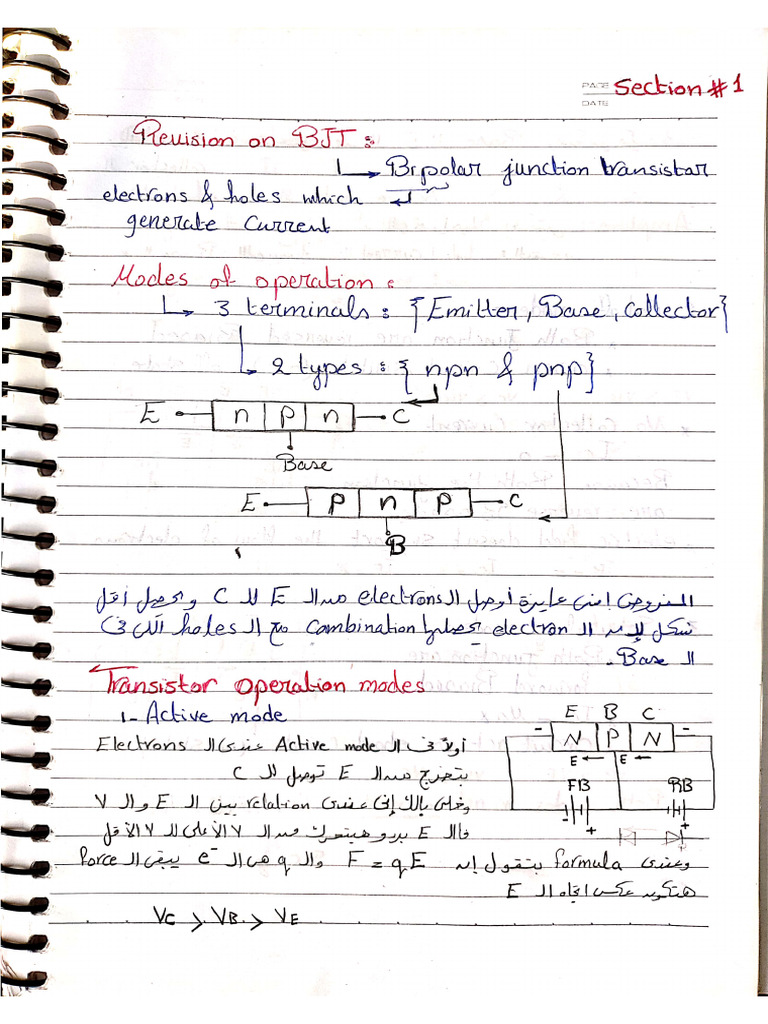 PAGE Section #1
DATE
Revision on BJT :
Bipolar junction transistar
electrons & holes which
generate current
Modes of operation :
3 terminals : {Emitter, Base, collector}
2 types : { npn & pnp}
E n p n C
Base
E p n p C
B
المفروض إني عايزة أوصل الـ electrons من الـ E للـ C ويحصل أقل
شكل لإنه الـ electron يحصلها combination مع الـ holes اللي في
الـ Base.
Transistor operation modes
1- Active mode
E B C
- N P N -
E ← E ←
FB RB
- + +
أولاً في الـ Active mode عندي الـ Electrons
بتخرج من الـ E توصل للـ C
وخلي بالك إن عندي relation بين الـ E والـ V
فالـ E بيتحرك من الـ V الأعلى للـ V الأقل
وعندي formula بتقول إنه F = qE والـ q هي الـ e⁻ يبقى الـ Force
هتكون عكس اتجاه الـ E
Vc > VB > VE